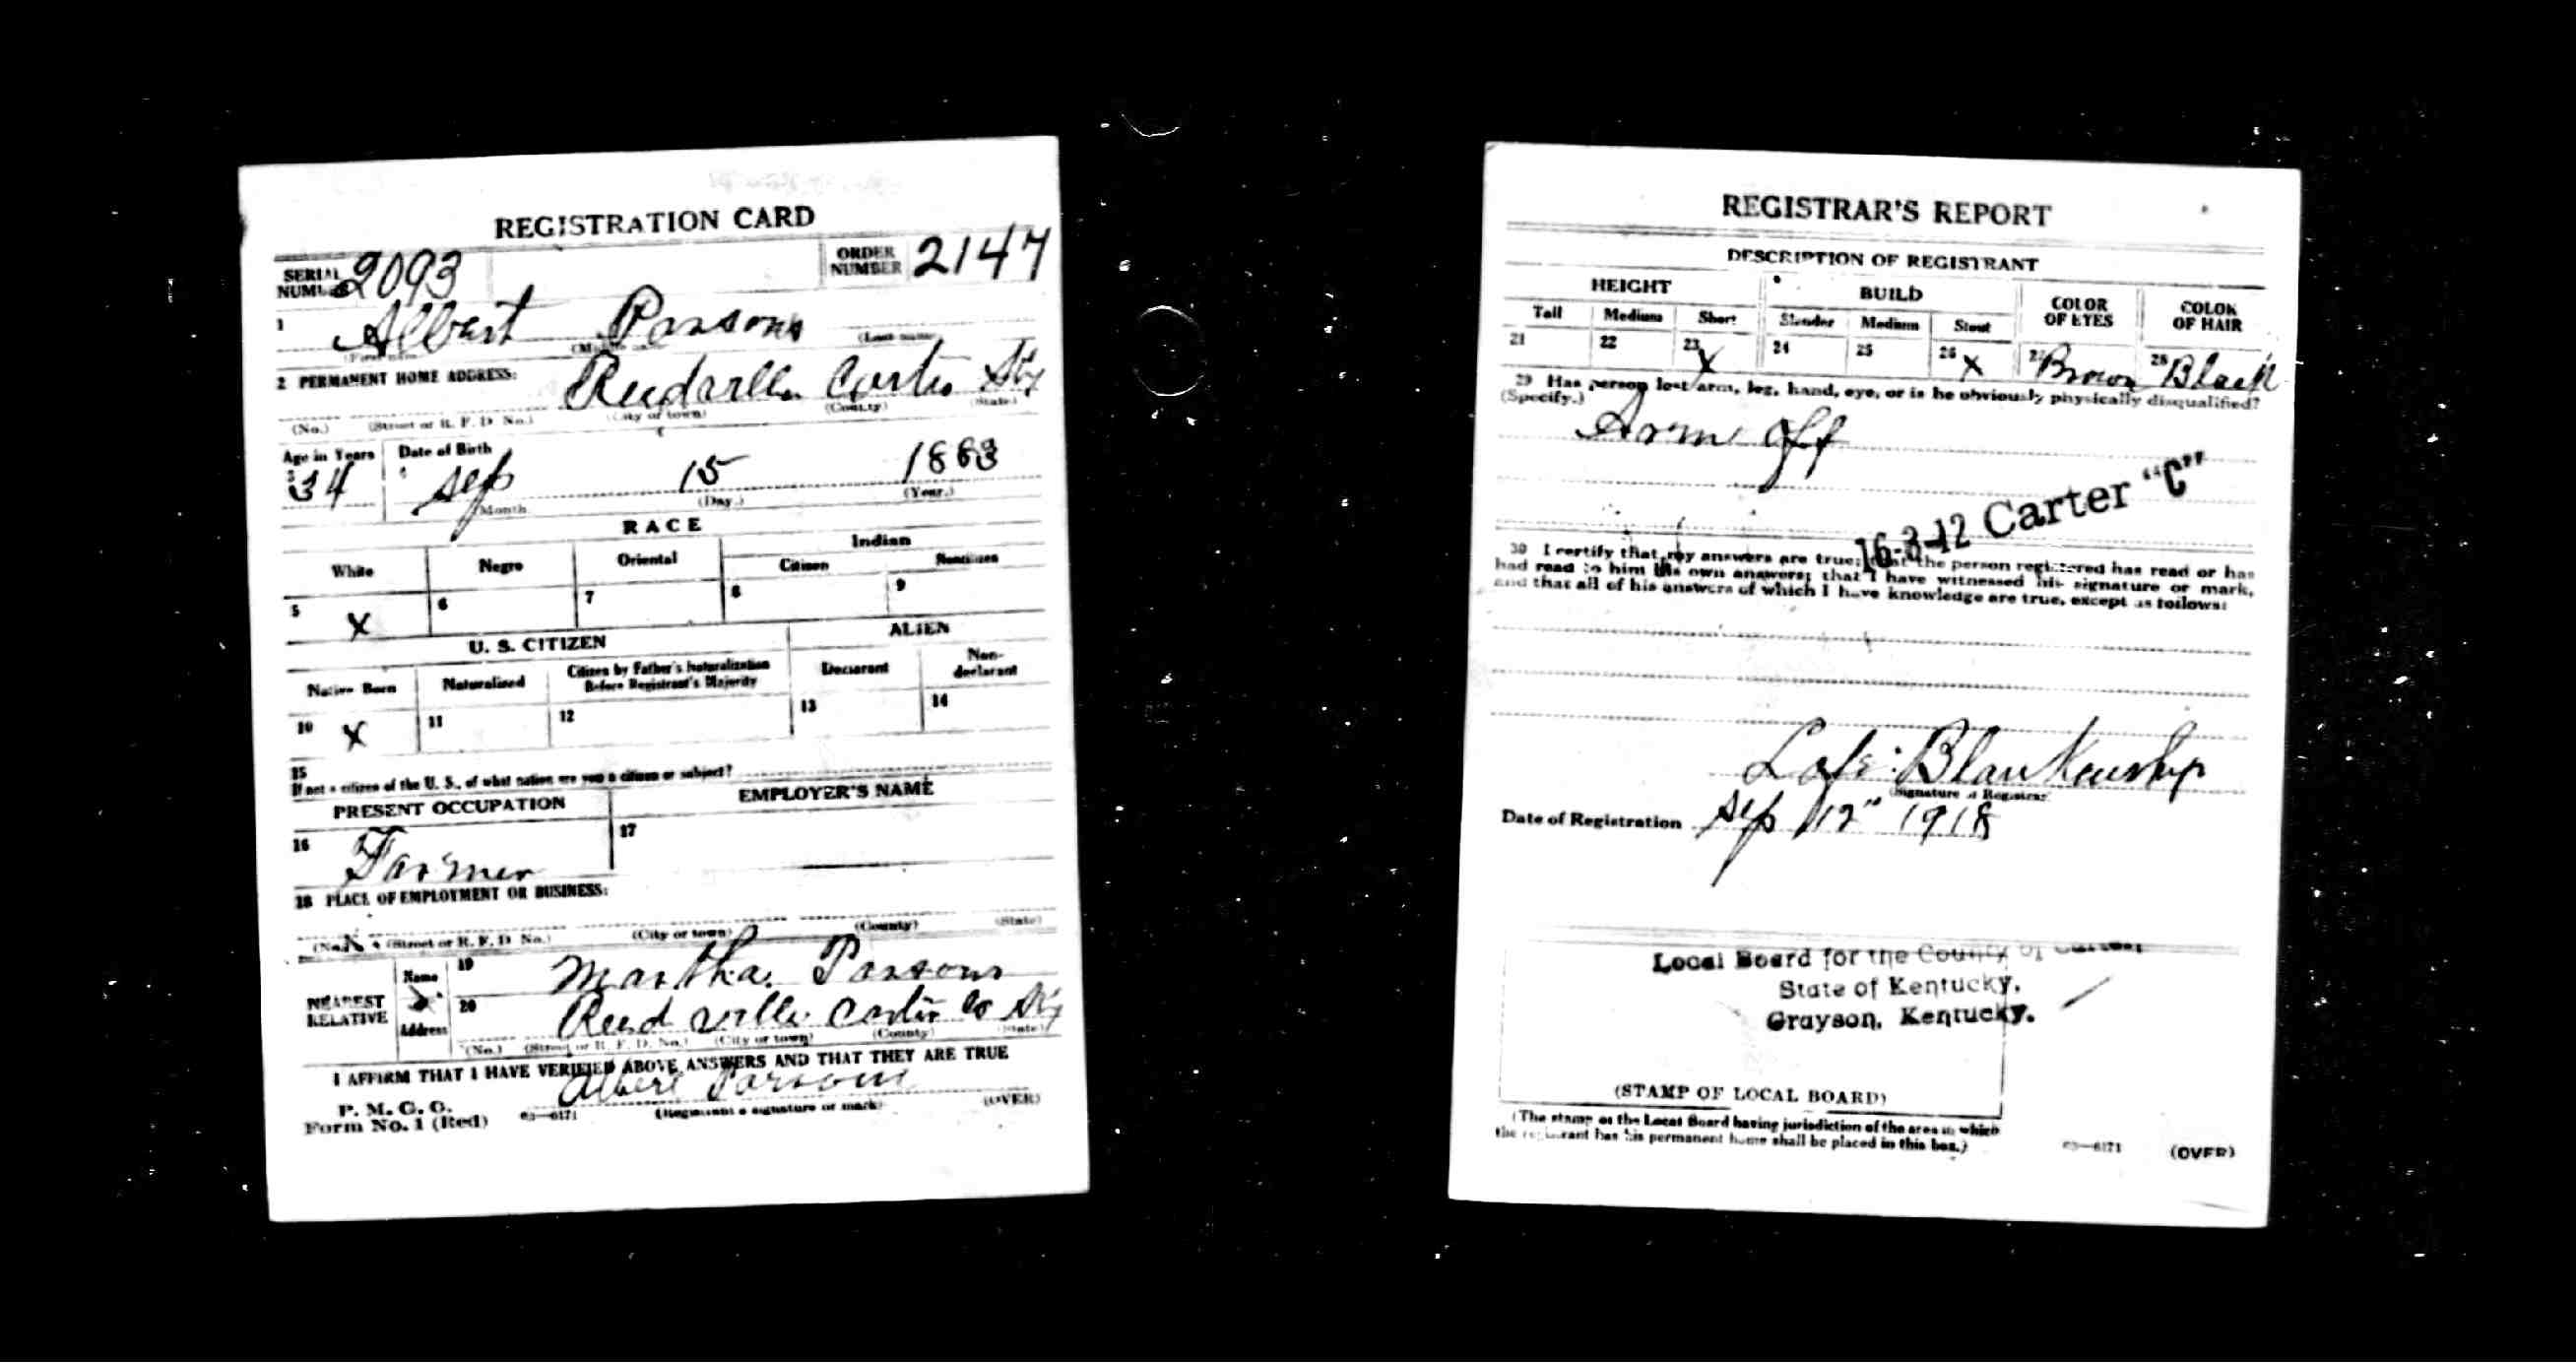 REGISTRATION CARD
SERIAL NUMBER 2093
ORDER NUMBER 2147
1 Albert Parsons
(First name) (Middle name) (Last name)
2 PERMANENT HOME ADDRESS:
Reedville Carter Ky
(No.) (Street or R. F. D. No.) (City or town) (County) (State)
Age in Years Date of Birth
3 34 4 Sep 15 1883
(Month.) (Day.) (Year.)
RACE
White Negro Oriental Indian
Citizen Noncitizen
5 X 6 7 8 9
U. S. CITIZEN ALIEN
Native Born Naturalized Citizen by Father's Naturalization Before Registrant's Majority Declarant Non-declarant
10 X 11 12 13 14
15
If not a citizen of the U. S., of what nation are you a citizen or subject?
PRESENT OCCUPATION EMPLOYER'S NAME
16 Farmer 17
18 PLACE OF EMPLOYMENT OR BUSINESS:
(No.) (Street or R. F. D. No.) (City or town) (County) (State)
NEAREST RELATIVE
Name 19 Martha Parsons
Address 20 Reedville Carter Co Ky
(No.) (Street or R. F. D. No.) (City or town) (County) (State)
I AFFIRM THAT I HAVE VERIFIED ABOVE ANSWERS AND THAT THEY ARE TRUE
Albert Parsons
P. M. G. O.
Form No. 1 (Red) 03—6171 (Registrant's signature or mark) (OVER)
REGISTRAR'S REPORT
DESCRIPTION OF REGISTRANT
HEIGHT BUILD COLOR OF EYES COLOR OF HAIR
Tall Medium Short Slender Medium Stout
21 22 23 X 24 25 26 X 27 Brown 28 Black
29 Has person lost arm, leg, hand, eye, or is he obviously physically disqualified?
(Specify.)
Arm off
16-3-12 Carter "C"
30 I certify that my answers are true; that the person registered has read or has
had read to him his own answers; that I have witnessed his signature or mark,
and that all of his answers of which I have knowledge are true, except as follows:
Blankenship
(Signature of Registrar)
Date of Registration Sep 12" 1918
Local Board for the County of Carter,
State of Kentucky,
Grayson, Kentucky.
(STAMP OF LOCAL BOARD)
(The stamp of the Local Board having jurisdiction of the area in which
the registrant has his permanent home shall be placed in this box.)
03—6171 (OVER)